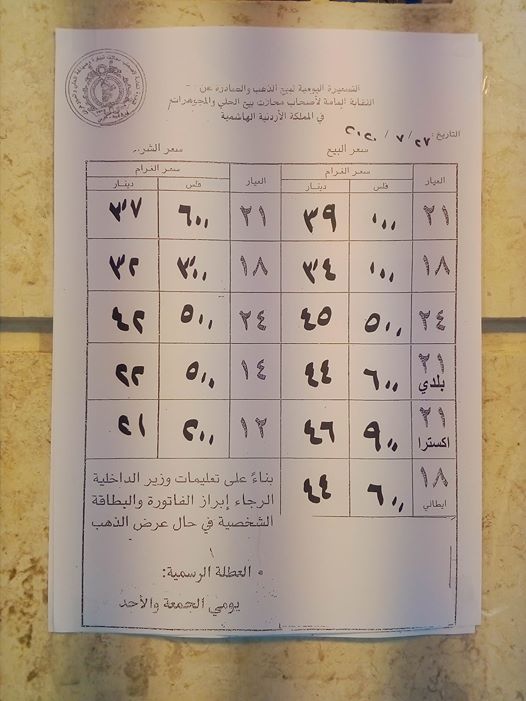 التسعيرة اليومية لبيع الذهب والصادرة عن
النقابة العامة لأصحاب محلات بيع الحلي والمجوهرات
في المملكة الأردنية الهاشمية
التاريخ: ٢٧ / ٧ /
سعر البيع سعر الشراء
العيار سعر الغرام العيار سعر الغرام
فلس دينار فلس دينار
٢١ ١٠٠ ٣٩ ٢١ ٦٠٠ ٣٧
١٨ ١٠٠ ٣٤ ١٨ ٣٠٠ ٣٢
٢٤ ٥٠٠ ٤٥ ٢٤ ٥٠٠ ٤٢
٢١ بلدي ٦٠٠ ٤٤ ١٤ ٥٠٠ ٢٢
٢١ اكسترا ٩٠٠ ٤٦ ١٢ ٢٠٠ ٢١
١٨ ايطالي ٦٠٠ ٤٤
بناءً على تعليمات وزير الداخلية
الرجاء إبراز الفاتورة والبطاقة
الشخصية في حال عرض الذهب
• العطلة الرسمية:
يومي الجمعة والأحد